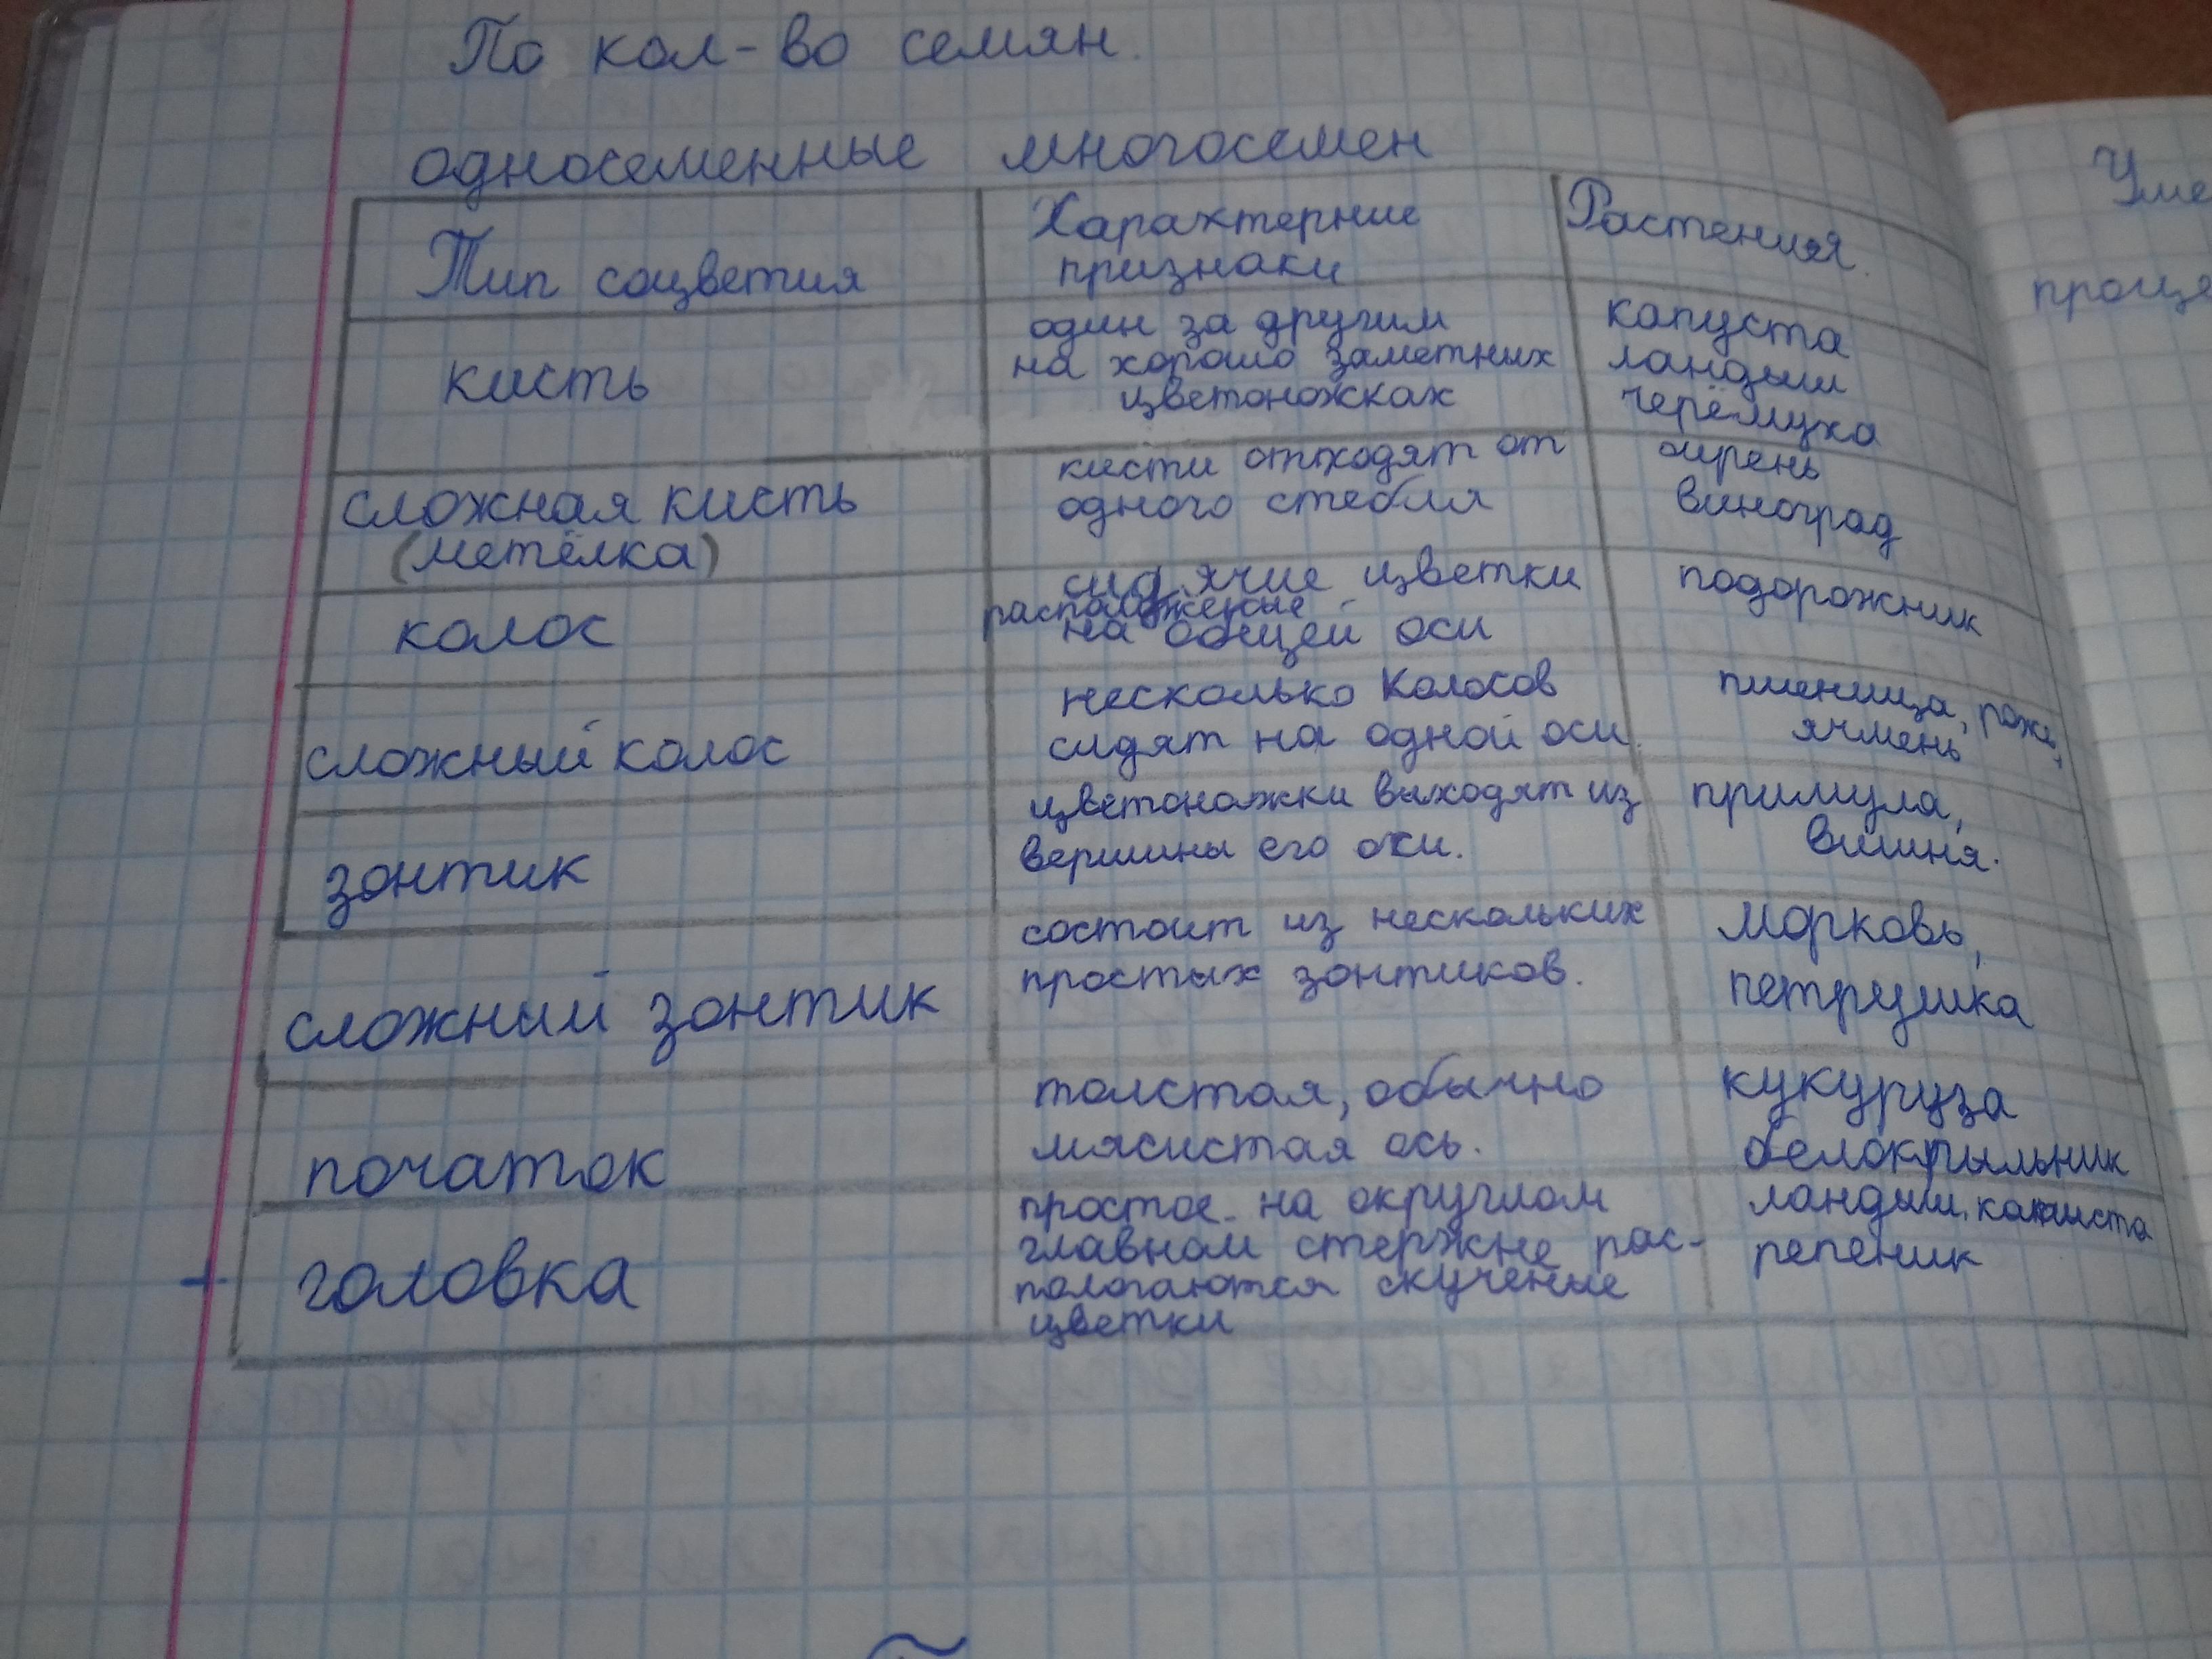 По кол-во семян.
односеменные многосемен
Тип соцветия
Характерные
признаки
Растения.
кисть
один за другим
на хорошо заметных
цветоножках
капуста
ландыш
черёмуха
сложная кисть
(метёлка)
кисти отходят от
одного стебля
сирень
виноград
колос
сидячие цветки
расположеные
на общей оси
подорожник
сложный колос
несколько колосов
сидят на одной оси.
пшеница, рожь,
ячмень
зонтик
цветоножки выходят из
вершины его оси.
примула,
вишня.
сложный зонтик
состоит из нескольких
простых зонтиков.
морковь,
петрушка
початок
толстая, обычно
мясистая ось.
кукуруза
белокрыльник
головка
простое- на округлом
главном стержне рас-
пологаются скученые
цветки
ландыш,
репеник
Уме
проце